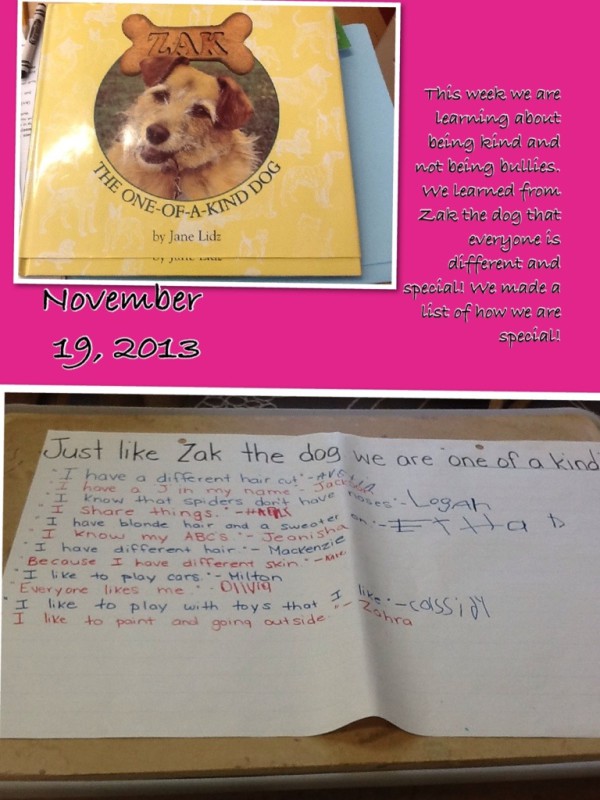 ZAK
THE ONE-OF-A-KIND DOG
by Jane Lidz
by Jane Lidz
November
19, 2013
This week we are
learning about
being kind and
not being bullies.
We learned from
Zak the dog that
everyone is
different and
special! We made a
list of how we are
special!
Just like Zak the dog we are one of a kind
"I have a different hair cut" -
"I have a J in my name" -
"I know that spiders don't have noses" - Logan
"I share things." -
"I have blonde hair and a sweater on" -
"I know my ABC's" - Jeanisha
"I have different hair" - Mackenzie
"Because I have different skin" -
"I like to play cars" - Milton
"Everyone likes me." - Olivia
"I like to play with toys that I like" - cassidy
"I like to paint and going outside." - Zahra